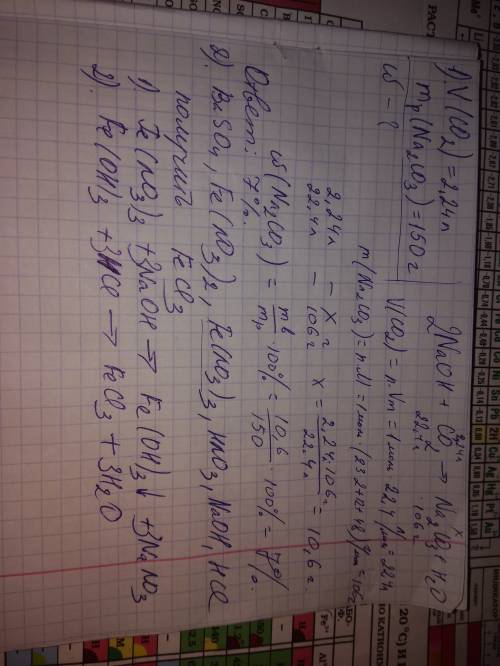 1). V(CO₂) = 2,24л
mр(Na₂CO₃) = 150г
ω - ?
2NaOH + CO₂ → Na₂CO₃ + H₂O
2,24л x
22,4л 106г
V(CO₂) = n·Vm = 1моль · 22,4 л/моль = 22,4
m(Na₂CO₃) = n·M = 1моль · (23·2+12+48) г/моль = 106г
2,24л - x г
22,4л - 106г
x = 2,24·106г / 22,4л = 10,6г.
ω(Na₂CO₃) = mв/mр · 100% = 10,6/150 · 100% = 7%.
Ответ: 7%.
2). BaSO₄, Fe(NO₃)₂, Fe(NO₃)₃, HNO₃, NaOH, HCl
получить FeCl₃
1). Fe(NO₃)₃ + 3NaOH → Fe(OH)₃↓ + 3NaNO₃
2). Fe(OH)₃ + 3HCl → FeCl₃ + 3H₂O
20 °C) И